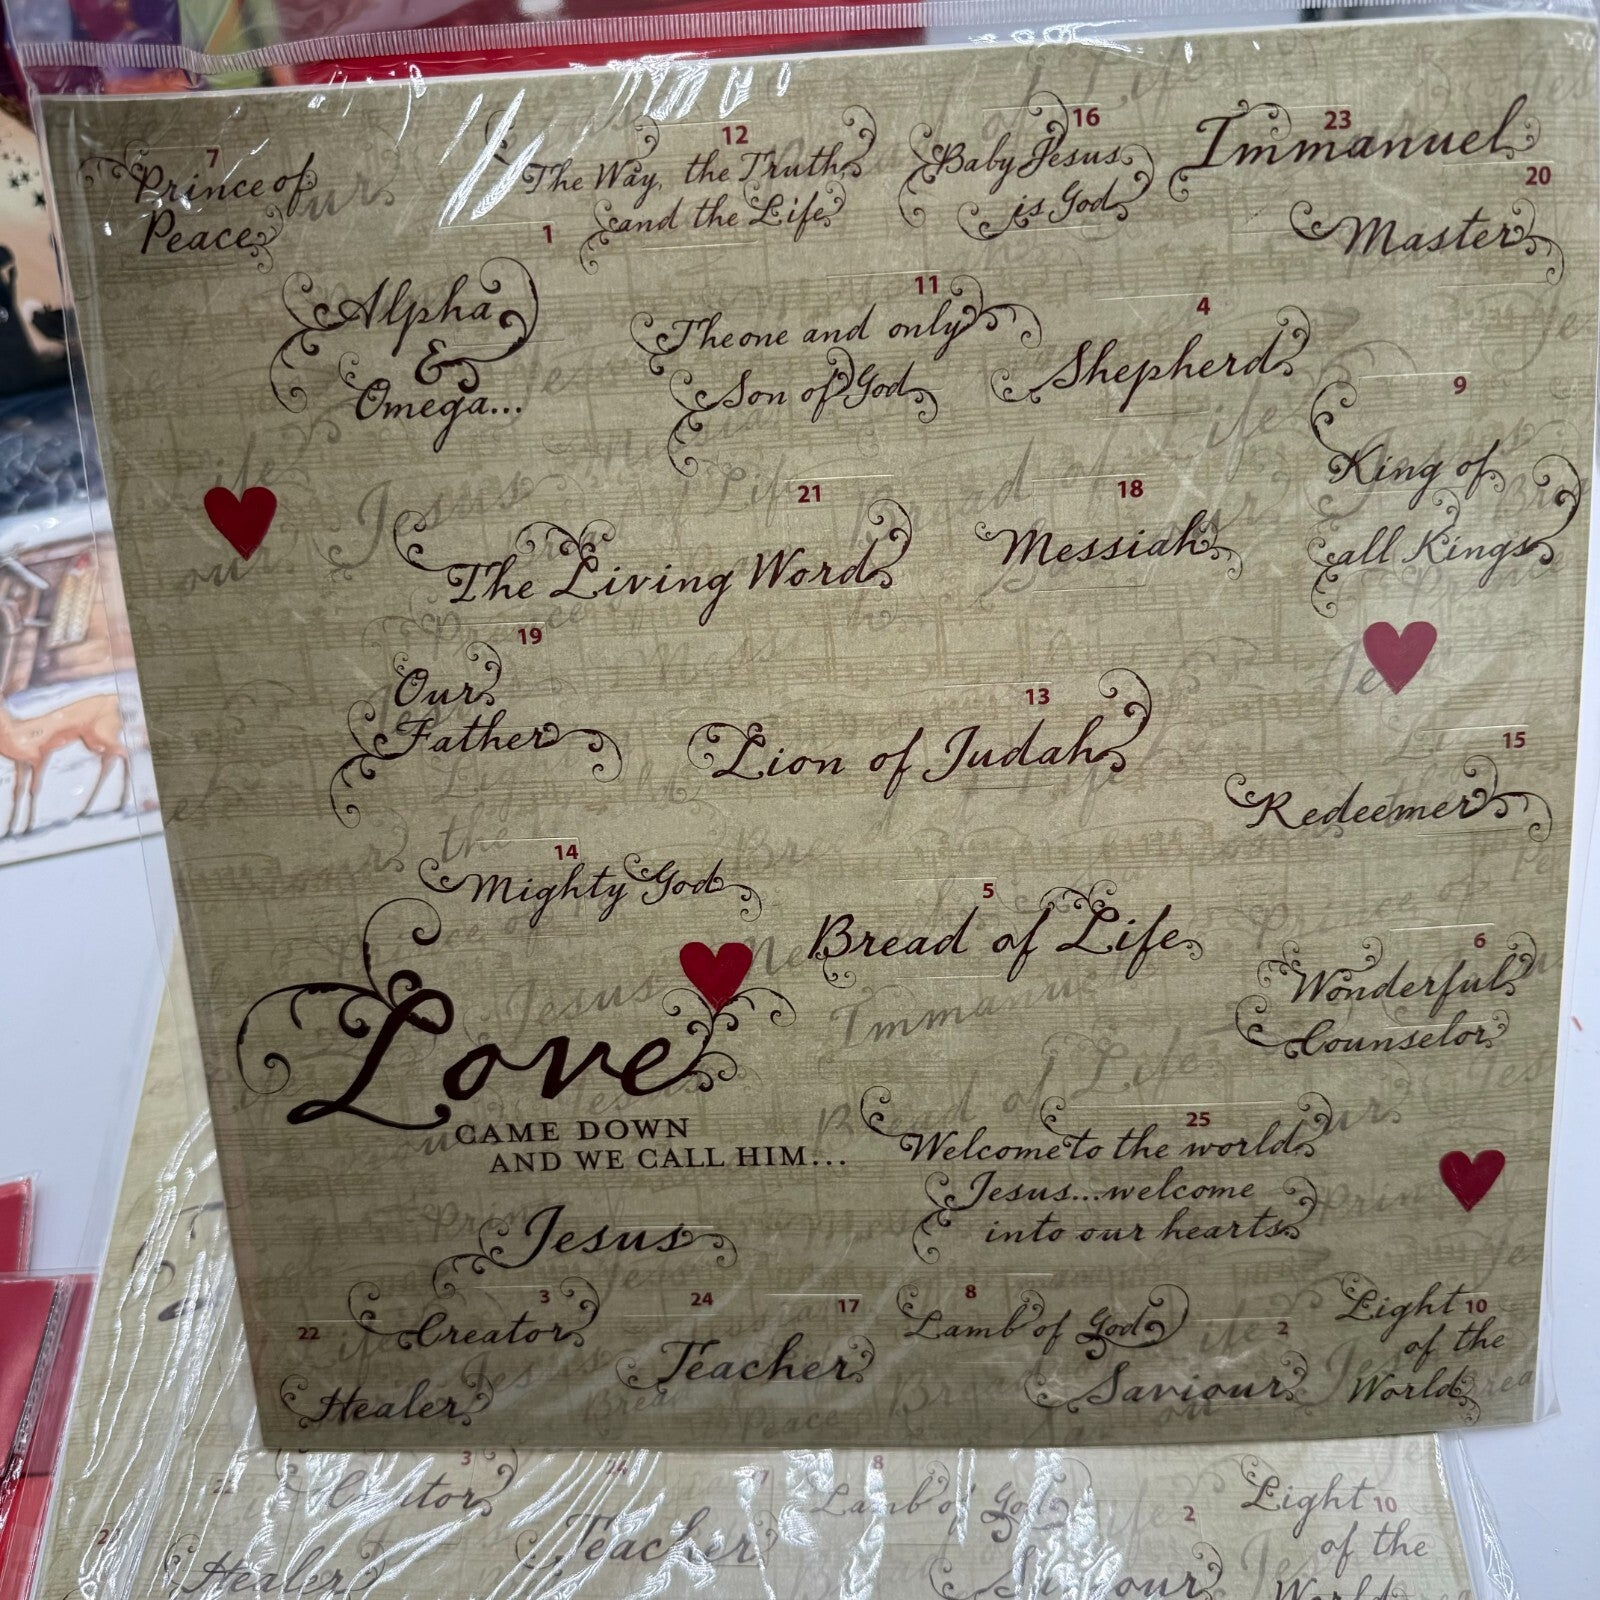 7
Prince of
Peace
12
The Way, the Truth,
and the Life
16
Baby Jesus
is God
23
Immanuel
20
Master
1
Alpha
&
Omega...
11
The one and only
Son of God
4
Shepherd
9
King of
all Kings
21
The Living Word
18
Messiah
19
Our
Father
13
Lion of Judah
15
Redeemer
14
Mighty God
5
Bread of Life
6
Wonderful
Counselor
Love
CAME DOWN
AND WE CALL HIM...
25
Welcome to the world
Jesus...welcome
into our hearts
Jesus
3
Creator
22
Healer
24
17
Teacher
8
Lamb of God
2
Saviour
Light 10
of the
World
3
24
8
Lamb of God
2
Light 10
of the
World
Teacher
Healer